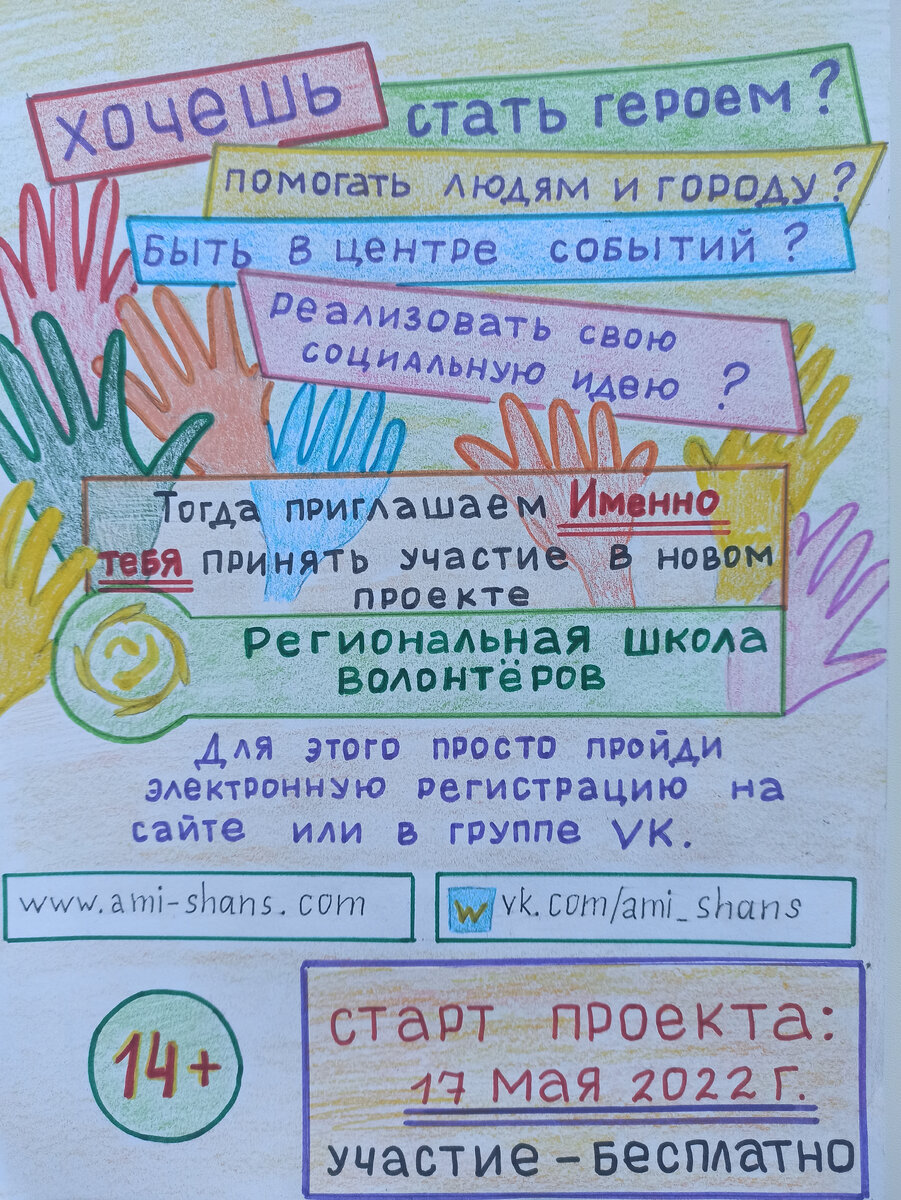 Хочешь стать героем?
помогать людям и городу?
быть в центре событий?
реализовать свою
социальную идею?
Тогда приглашаем Именно
тебя принять участие в новом
проекте
Региональная школа
волонтёров
Для этого просто пройди
электронную регистрацию на
сайте или в группе VK.
www.ami-shans.com
w vk.com/ami_shans
14+
старт проекта:
17 мая 2022 г.
участие – бесплатно